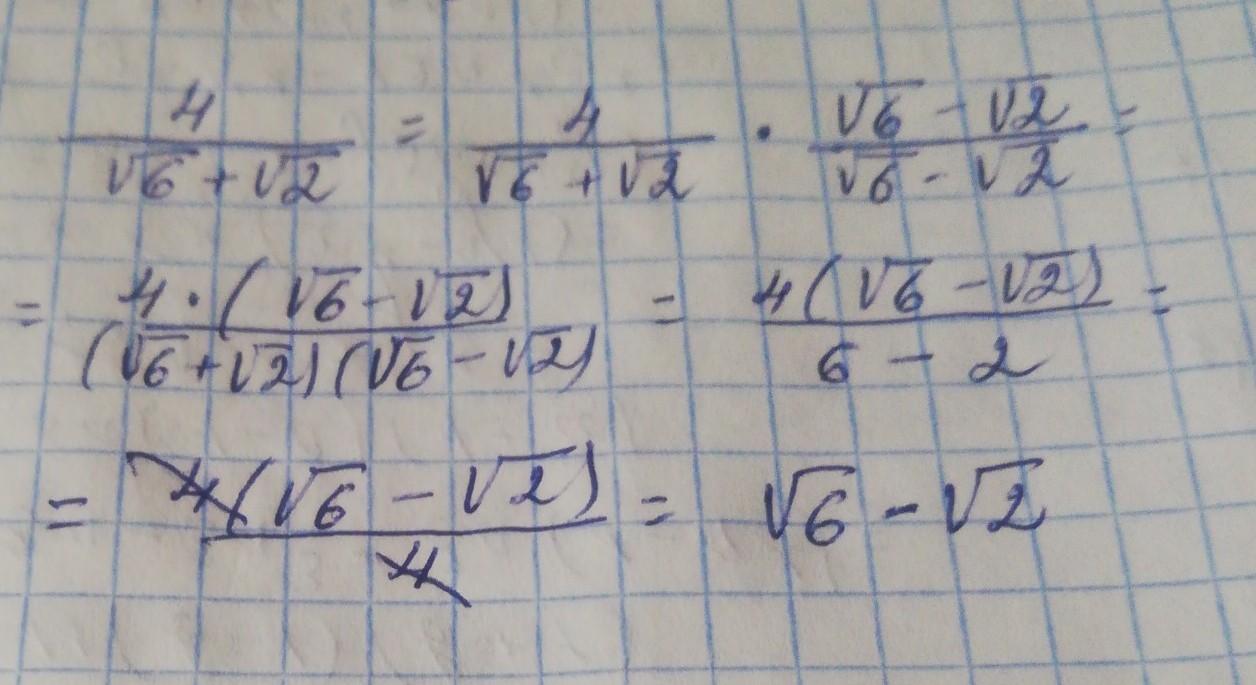 4/(√6 + √2) = 4/(√6 + √2) · (√6 - √2)/(√6 - √2) =
= 4 · (√6 - √2)/((√6 + √2)(√6 - √2)) = 4(√6 - √2)/(6 - 2) =
= 4(√6 - √2)/4 = √6 - √2